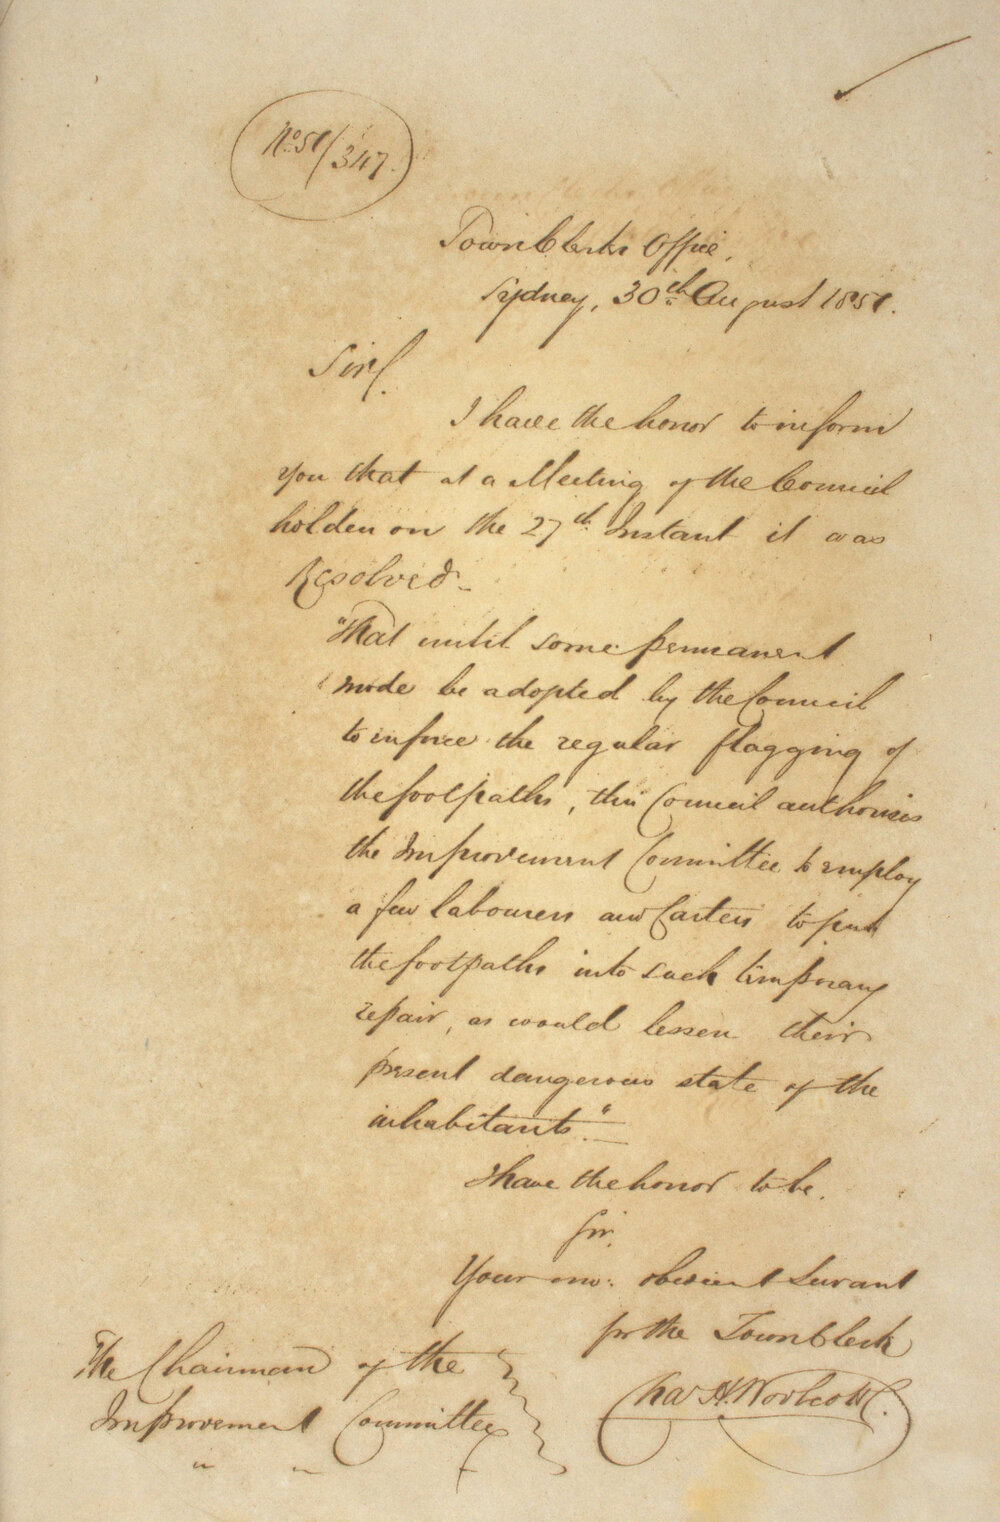 No 51/347.
Town Clerks Office,
Sydney, 30th August 1851.
Sir/.
I have the honor to inform
you that at a Meeting of the Council
holden on the 27th Instant it was
Resolved_
"That until some permanent
mode be adopted by the Council
to inforce the regular flagging of
the footpaths, this Council authorises
the Improvement Committee to employ
a few labourers and Carters to put
the footpaths into such temporary
repair, as would lessen their
present dangerous state of the
inhabitants."
I have the honor to be.
Sir.
Your mo: obedient Servant
for the Town Clerk
Chas H. Woolcott
The Chairman of the
Improvement Committee
" "